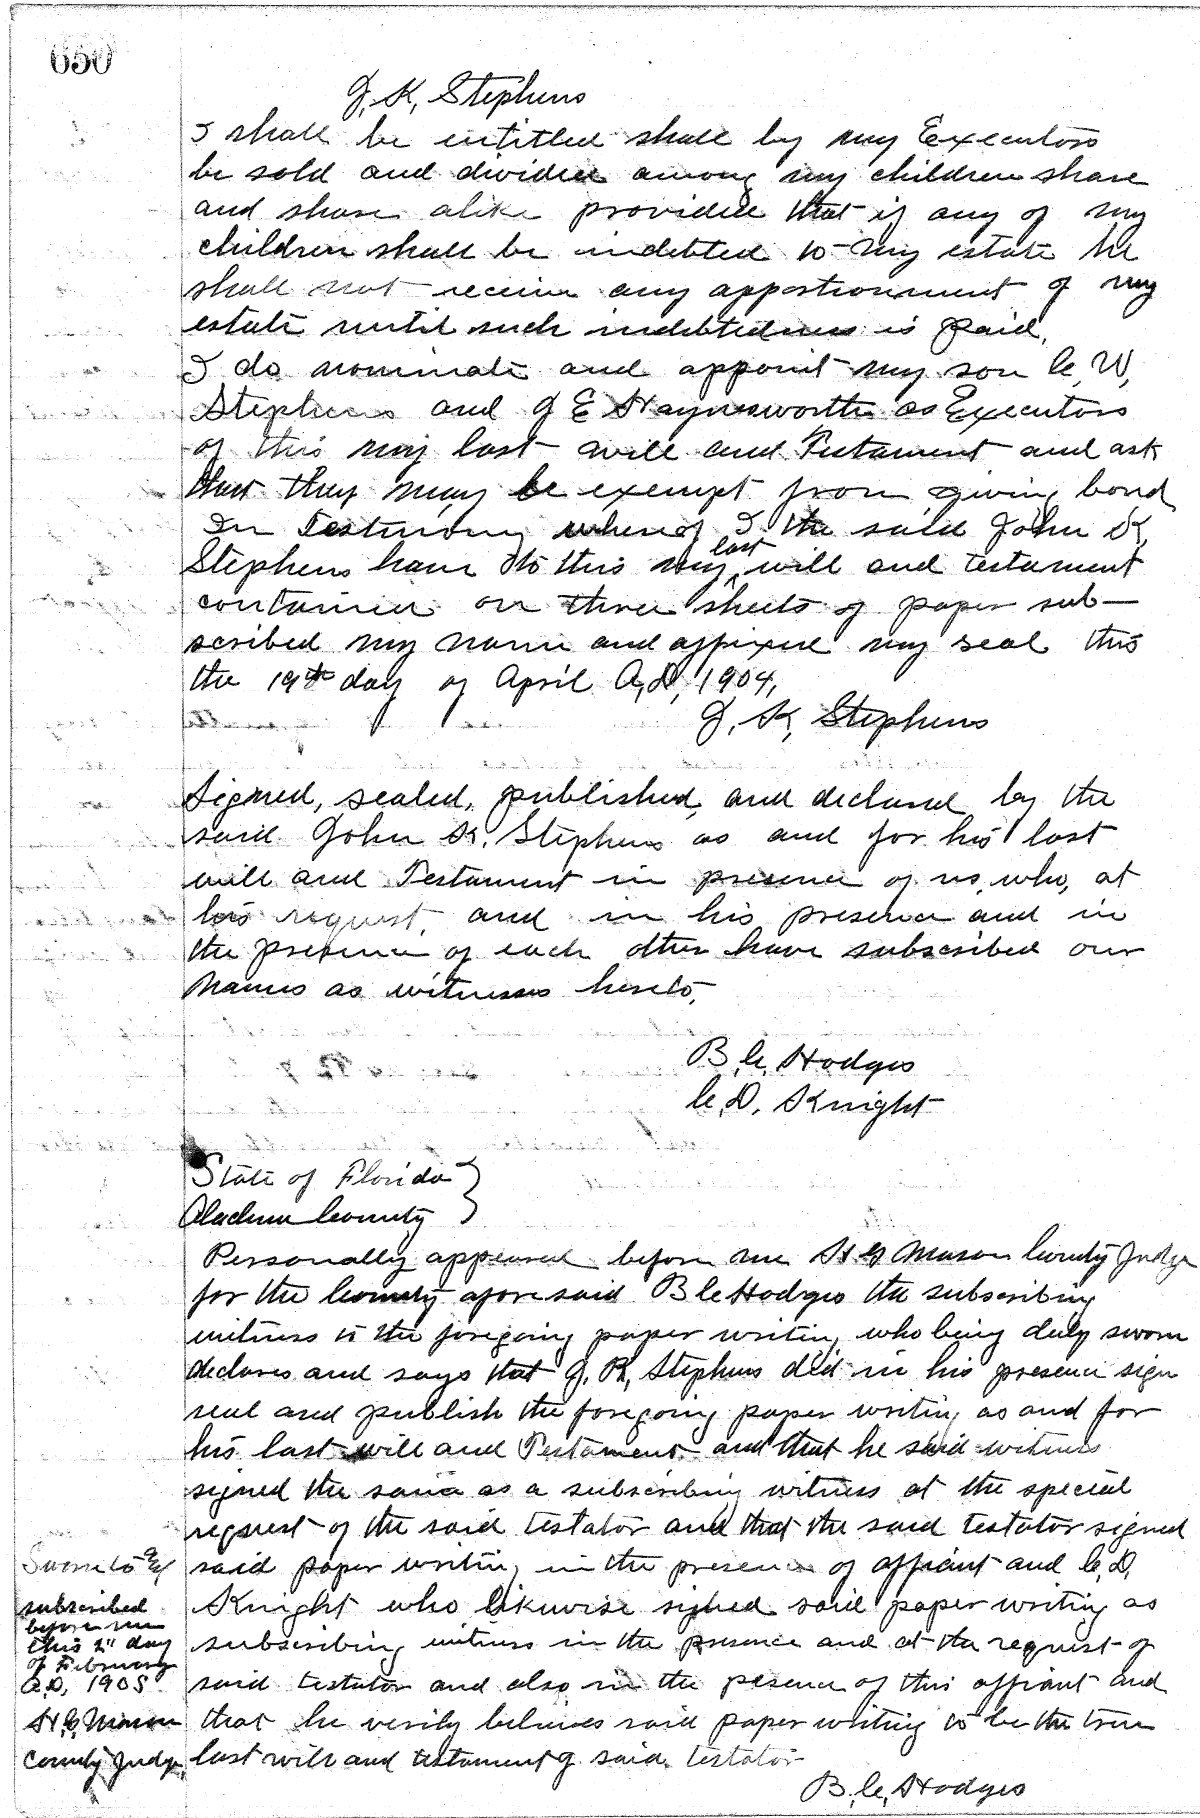 650
J. K. Stephens
I shall be entitled shall by my Executors
be sold and divided among my children share
and share alike provided that if any of my
children shall be indebted to my estate he
shall not receive any apportionment of my
estate until such indebtedness is paid.
I do nominate and appoint my son C. W.
Stephens and J E Haynesworth as Executors
of this my last will and Testament and ask
that they may be exempt from giving bond
In Testimony whereof I the said John K.
Stephens have to this my last will and testament
contained on three sheets of paper sub-
scribed my name and affixed my seal this
the 19th day of April A.D, 1904,
J. K, Stephens
Signed, sealed, published, and declared by the
said John K. Stephens as and for his last
will and Testament in presence of us, who, at
his request, and in his presence and in
the presence of each other have subscribed our
names as witnesses hereto,
B. C. Hodges
C. D. Knight
State of Florida }
Alachua County }
Personally appeared before me H G Mason County Judge
for the County aforesaid B C Hodges the subscribing
witness to the foregoing paper writing who being duly sworn
declares and says that J. K, Stephens did in his presence sign
seal and publish the foregoing paper writing as and for
his last will and Testament and that he said witness
signed the same as a subscribing witness at the special
request of the said testator and that the said testator signed
said paper writing in the presence of affiant and C. D.
Knight who likewise signed said paper writing as
subscribing witness in the presence and at the request of
said testator and also in the pesence of this affiant and
that he verily believes said paper writing to be the true
last will and testament of said testator
B. C. Hodges
Sworn to &
subscribed
before me
this 2" day
of February
A.D, 1905
H. G. Mason
County Judge